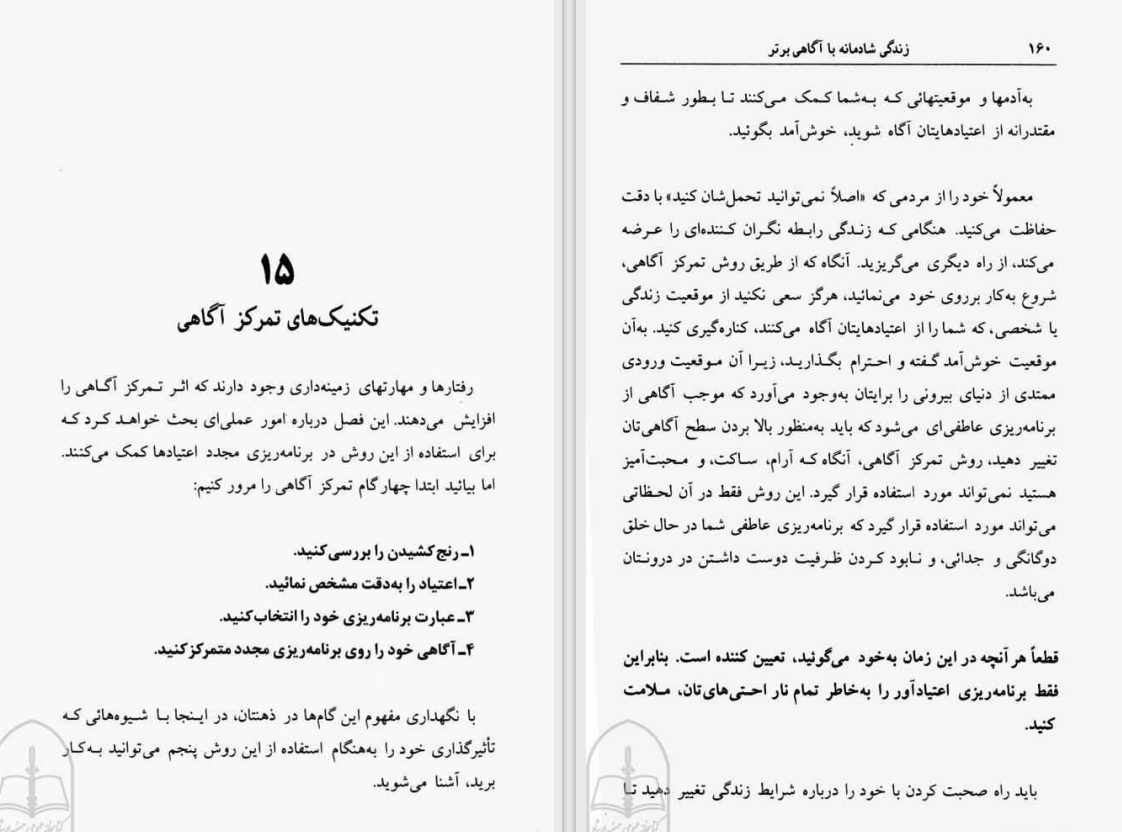 ۱۶۰
زندگی شادمانه با آگاهی برتر
به‌آدمها و موقعیتهائی که به‌شما کمک می‌کنند تا بطور شفاف و
مقتدرانه از اعتیادهایتان آگاه شوید، خوش‌آمد بگوئید.
معمولاً خود را از مردمی که «اصلاً نمی‌توانید تحمل‌شان کنید» با دقت
حفاظت می‌کنید. هنگامی که زندگی رابطه نگران کننده‌ای را عرضه
می‌کند، از راه دیگری می‌گریزید. آنگاه که از طریق روش تمرکز آگاهی،
شروع به‌کار برروی خود می‌نمائید، هرگز سعی نکنید از موقعیت زندگی
یا شخصی، که شما را از اعتیادهایتان آگاه می‌کنند، کناره‌گیری کنید. به‌آن
موقعیت خوش‌آمد گفته و احترام بگذارید، زیرا آن موقعیت ورودی
ممتدی از دنیای بیرونی را برایتان به‌وجود می‌آورد که موجب آگاهی از
برنامه‌ریزی عاطفی‌ای می‌شود که باید به‌منظور بالا بردن سطح آگاهی‌تان
تغییر دهید، روش تمرکز آگاهی، آنگاه که آرام، ساکت، و محبت‌آمیز
هستید نمی‌تواند مورد استفاده قرار گیرد. این روش فقط در آن لحظاتی
می‌تواند مورد استفاده قرار گیرد که برنامه‌ریزی عاطفی شما در حال خلق
دوگانگی و جدائی، و نابود کردن ظرفیت دوست داشتن در درونتان
می‌باشد.
قطعاً هر آنچه در این زمان به‌خود می‌گوئید، تعیین کننده است. بنابراین
فقط برنامه‌ریزی اعتیادآور را به‌خاطر تمام نار احتی‌های‌تان، ملامت
کنید.
باید راه صحبت کردن با خود را درباره شرایط زندگی تغییر دهید تا
۱۵
تکنیک‌های تمرکز آگاهی
رفتارها و مهارتهای زمینه‌داری وجود دارند که اثر تمرکز آگاهی را
افزایش می‌دهند. این فصل درباره امور عملی‌ای بحث خواهد کرد که
برای استفاده از این روش در برنامه‌ریزی مجدد اعتیادها کمک می‌کنند.
اما بیائید ابتدا چهار گام تمرکز آگاهی را مرور کنیم:
۱ـ رنج کشیدن را بررسی کنید.
۲ـ اعتیاد را به‌دقت مشخص نمائید.
۳ـ عبارت برنامه‌ریزی خود را انتخاب کنید.
۴ـ آگاهی خود را روی برنامه‌ریزی مجدد متمرکز کنید.
با نگهداری مفهوم این گام‌ها در ذهنتان، در اینجا با شیوه‌هائی که
تأثیرگذاری خود را به‌هنگام استفاده از این روش پنجم می‌توانید به‌کار
برید، آشنا می‌شوید.